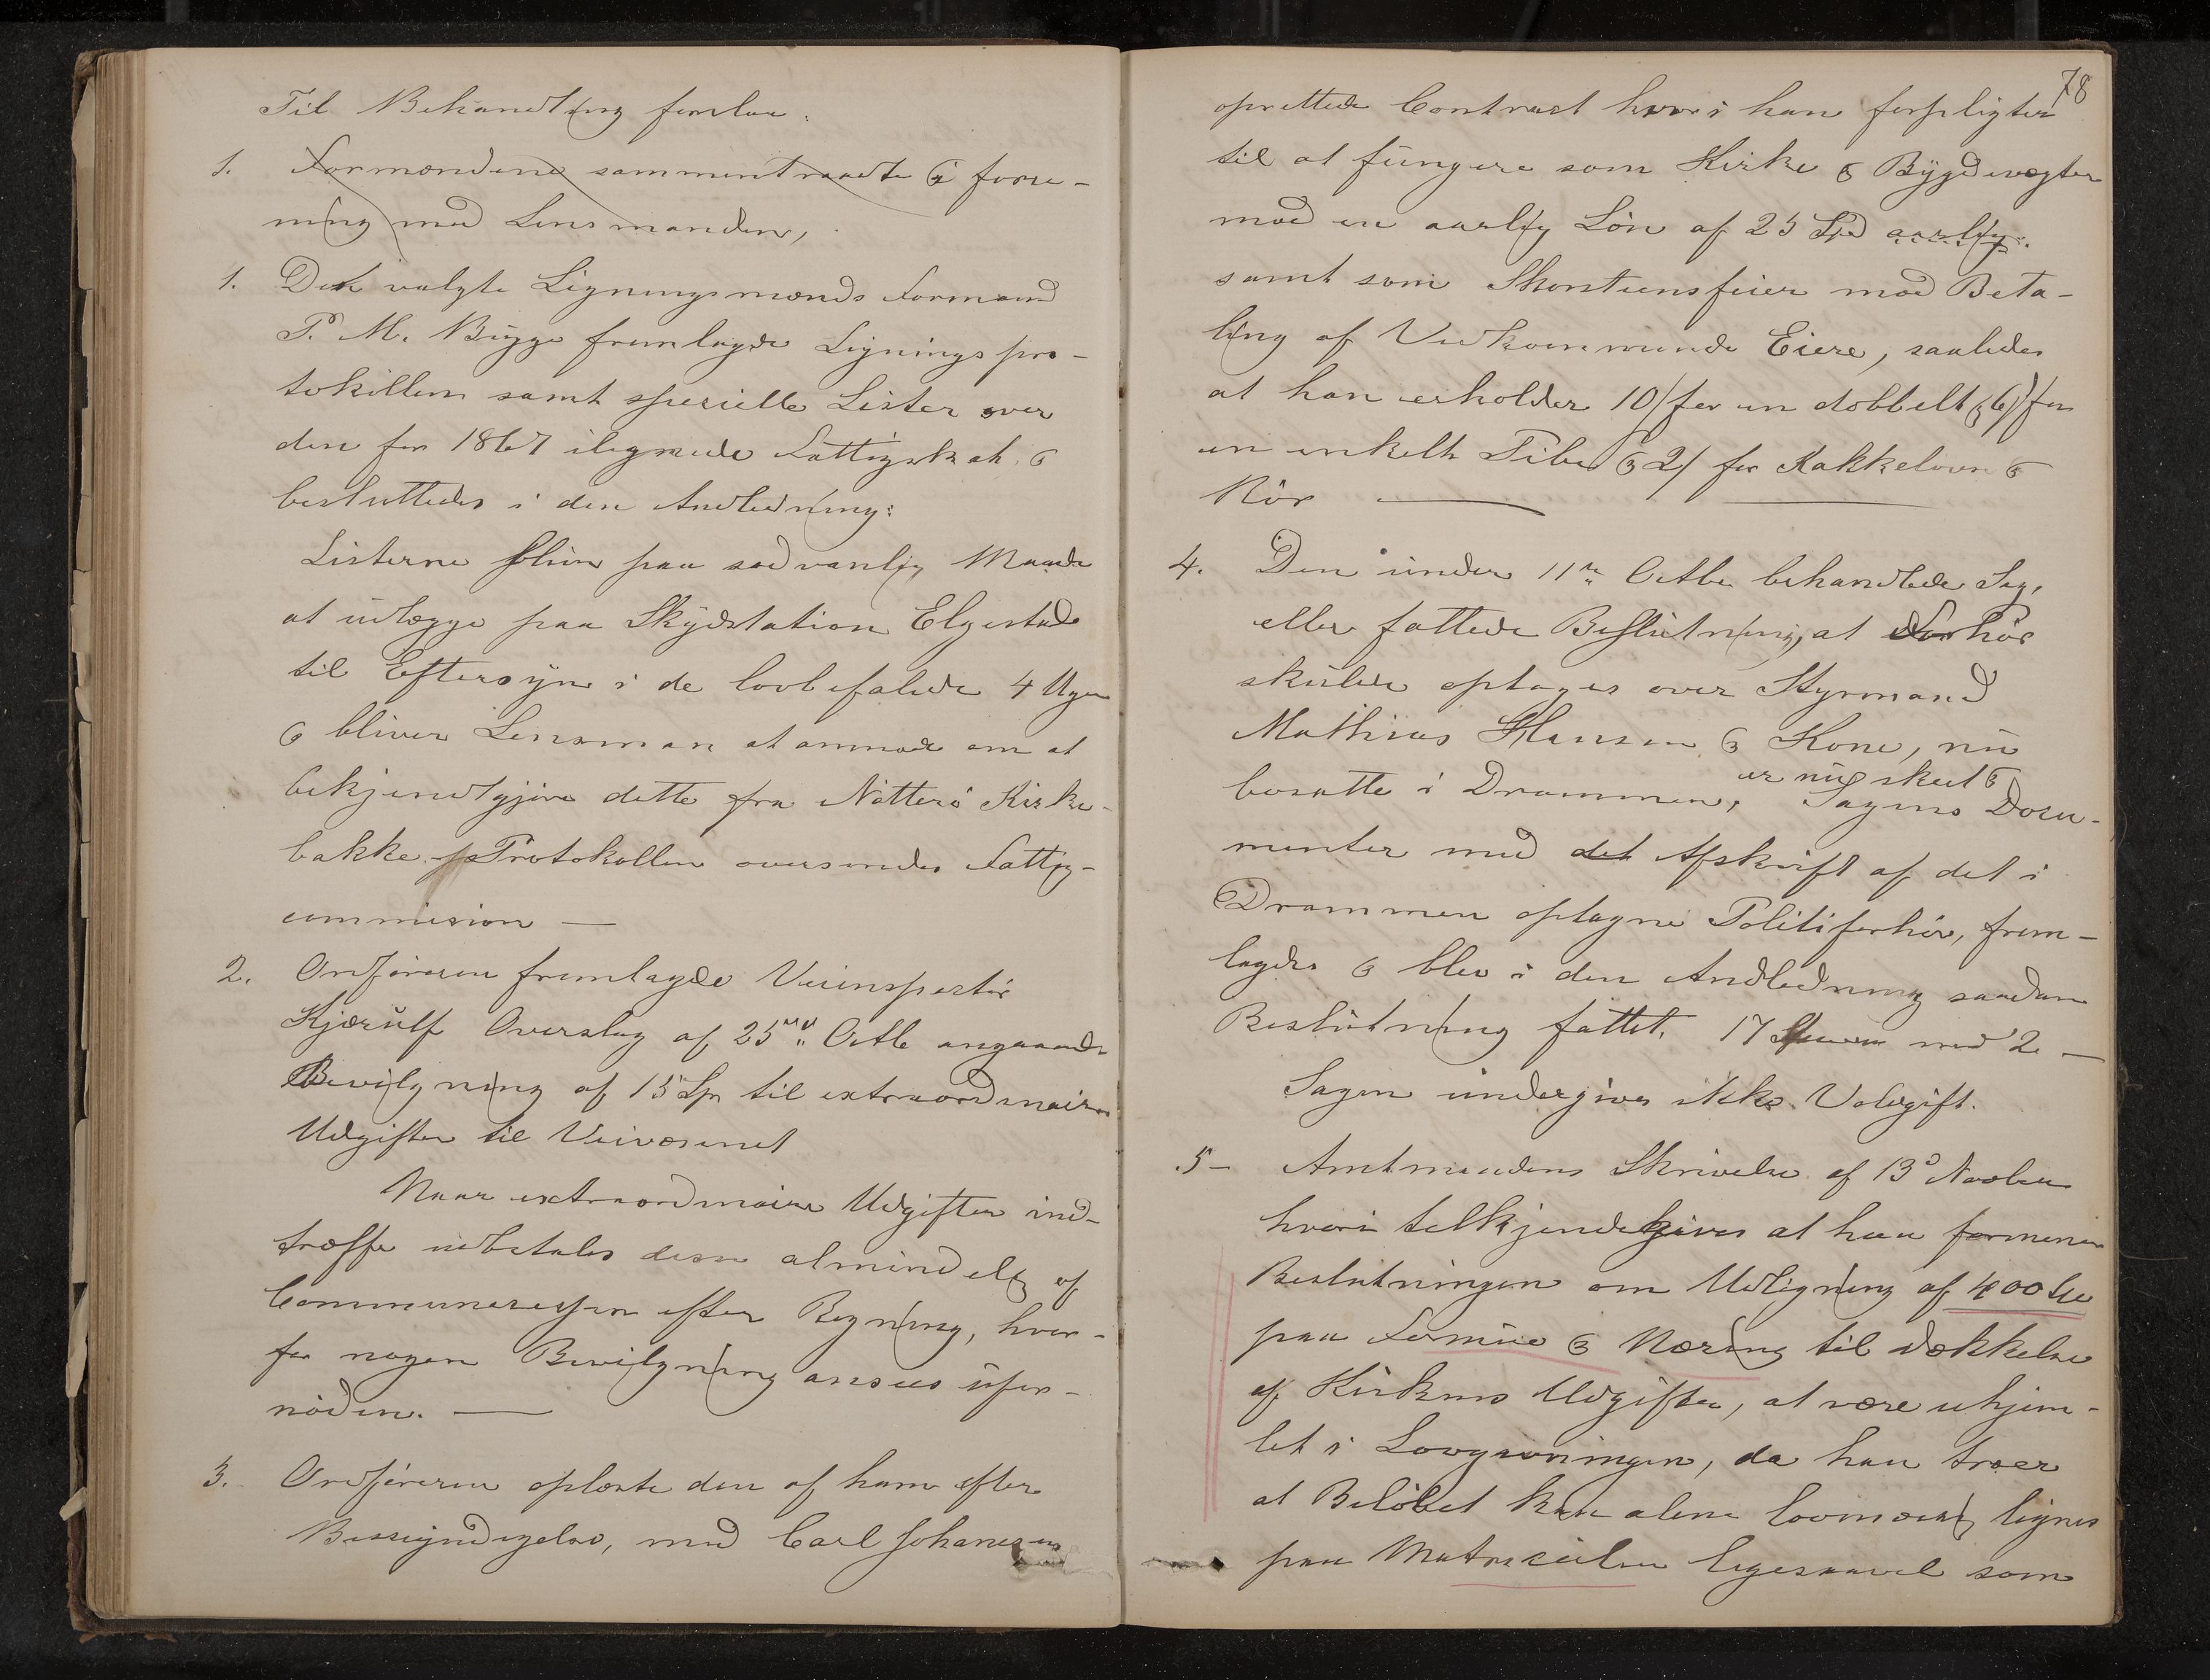 Til Behandling forelaa:
1. Formændene sammentraadte i fore-
ning med Lensmanden,
1. Den valgte Ligningsmænds Formand
P. M. Bugge fremlagde Lignings pro-
tokillen samt specielle Lister over
den for 1867 ilignede Fattigskat, &
besluttedes i den Anledning:
Listerne blive paa sædvanlig Maade
at udlægge paa Skydstation Elgestad
til Eftersyn i de lovbefalede 4 Uger
& bliver Lensman at anmode om at
bekjendtgjøre dette fra Nøtterø Kirke-
bakke. Protokollen oversendes Fattig-
commision —
2. Ordføreren fremlagde Veiinspectør
Kjerulf Overslag af 25 Octb angaaende
Bevilgning af 15 Sp til extraordinaire
Udgifter til Veivæsenet
Naar extraordinaire Udgifter ind-
træffe udbetales disse almindelig af
Communecassen efter Regning, hvor-
for nogen Bevilgning ansees ufor-
nøden. —
3. Ordføreren oplæste den af ham efter
Bessyndigelse, med Carl Johanesen
78
oprettede Contract hvori han forpligter
til at fungere som Kirke & Bygdevægter
mod en aarlig Løn af 25 Spd aarlig.
samt som Skorsteensfeier mod Beta-
ling af Vedkommende Eiere, saaledes
at han erholder 10/ for en dobbelt & 6/ for
en enkelt Pibe & 2/ for Kakkelovn &
Rør —
4. Den under 11te Octbr behandlede Sag,
eller fattede Beslutning, at Forhør
skulde optages over Styrmand
Mathias Hansen & Kone, nu
bosatte i Drammen, er nu skeet &
Sagens Docu-
menter med det Afskrift af det i
Drammen optagne Politiforhør, frem-
lagdes & blev i den Andledning saadan
Beslutning fattet, 17 Stemmer mod 2 —
Sagen undergives ikke Voldgift.
5 – Amtmandens Skrivelse af 13de Novbr
hvori tilkjendegives at han formener
Beslutningen om Udligning af 400 Spe
paa Formue & Næring til Dækkelse
af Kirkens Udgifter, at være uhjem-
let i Lovgivningen, da han troer
at Beløbet kun alene lovmæssig lignes
paa Matrculen ligesaavel som